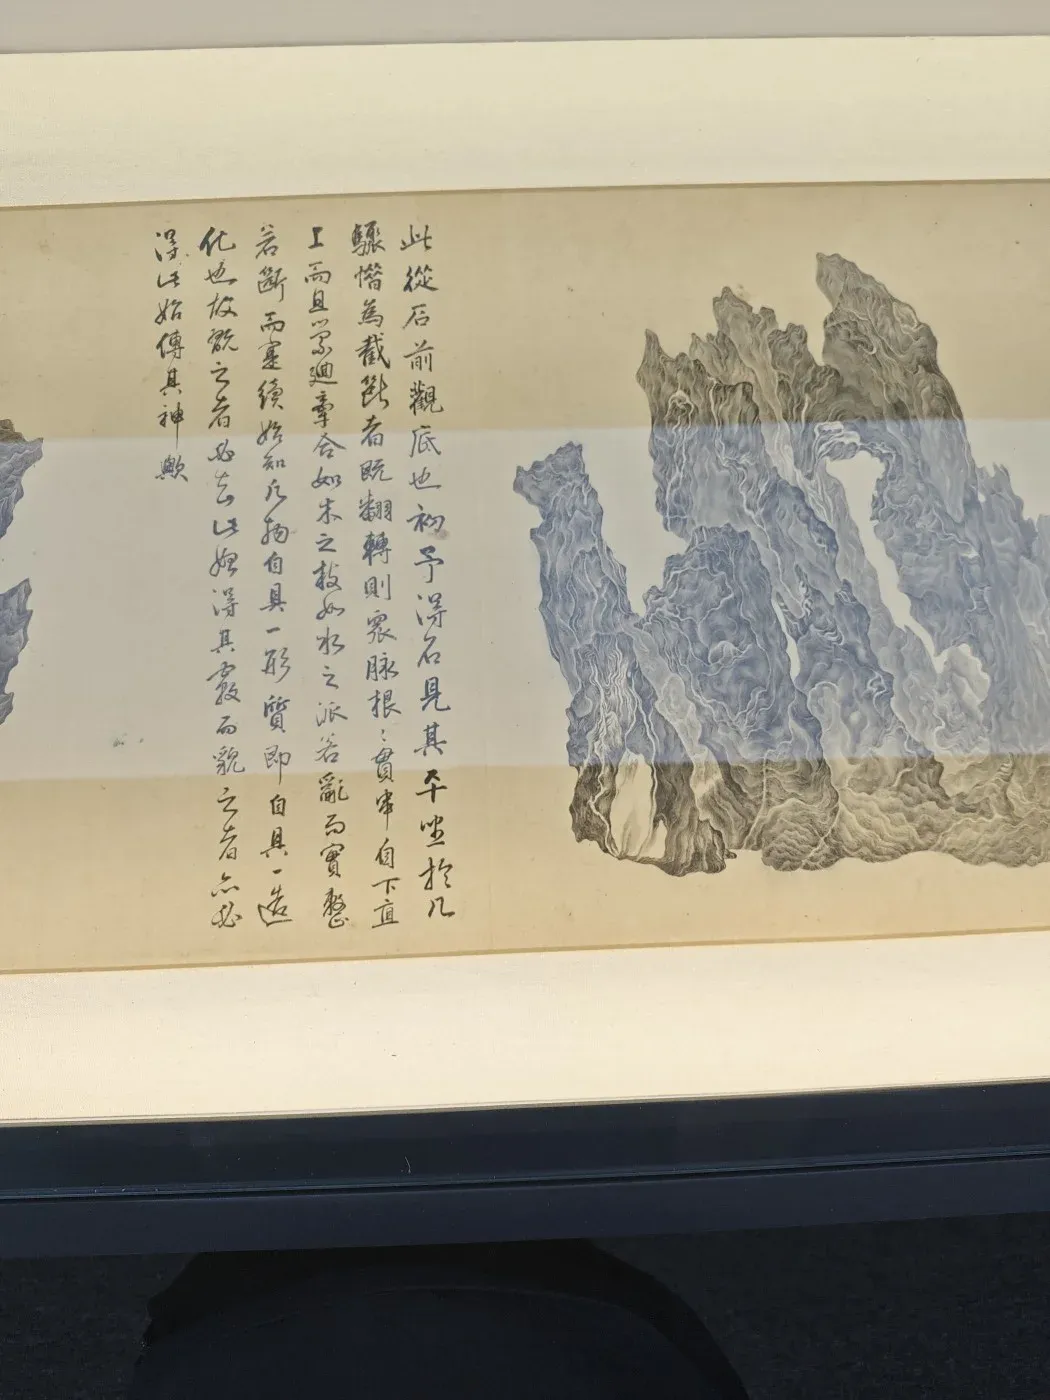 此從石前觀底也初予得石見其平坐於几
驟憯為截斷者既翻轉則衆脉根〻貫串自下直
上而且縈迴牽合如木之枝如水之派若亂而實整
若斷而實續始知凡物自具一形質即自具一造
化也故說之者必知此始得其竅而貌之者亦必
得此始傳其神歟